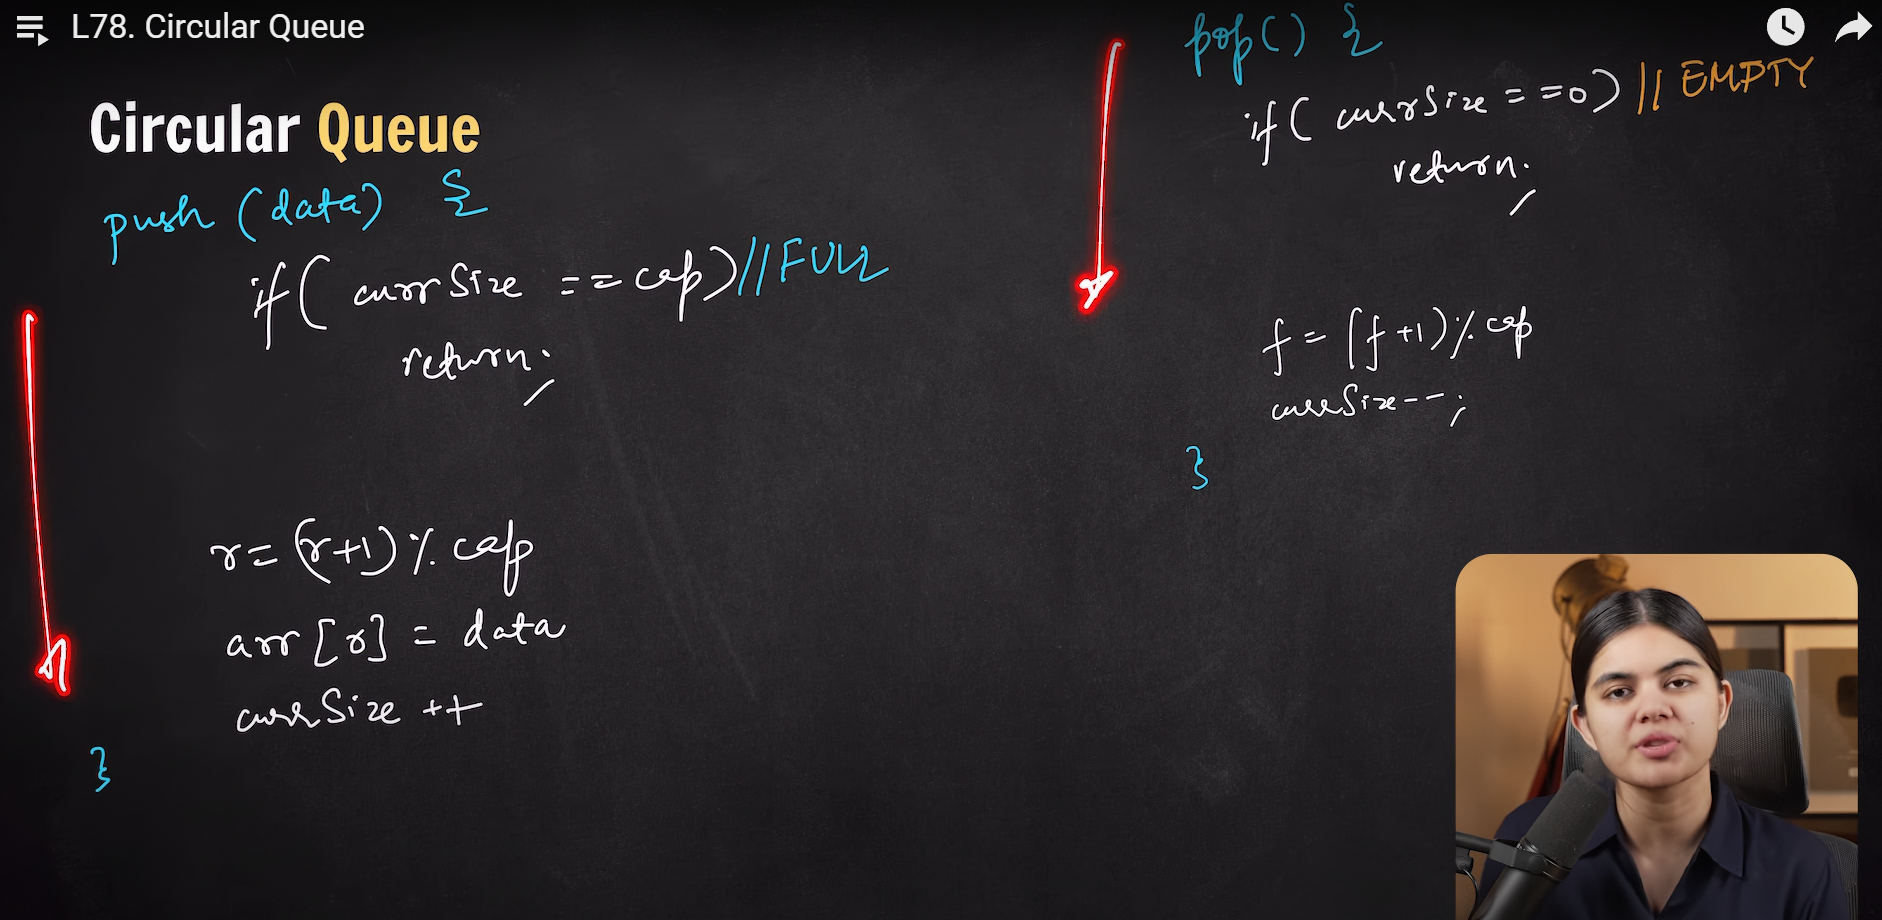 L78. Circular Queue
Circular Queue
push (data) {
if( currSize == cap) // FULL
return;
r = (r+1) % cap
arr [r] = data
currSize ++
}
pop() {
if( currSize == 0) // EMPTY
return;
f = (f+1) % cap
currSize--;
}